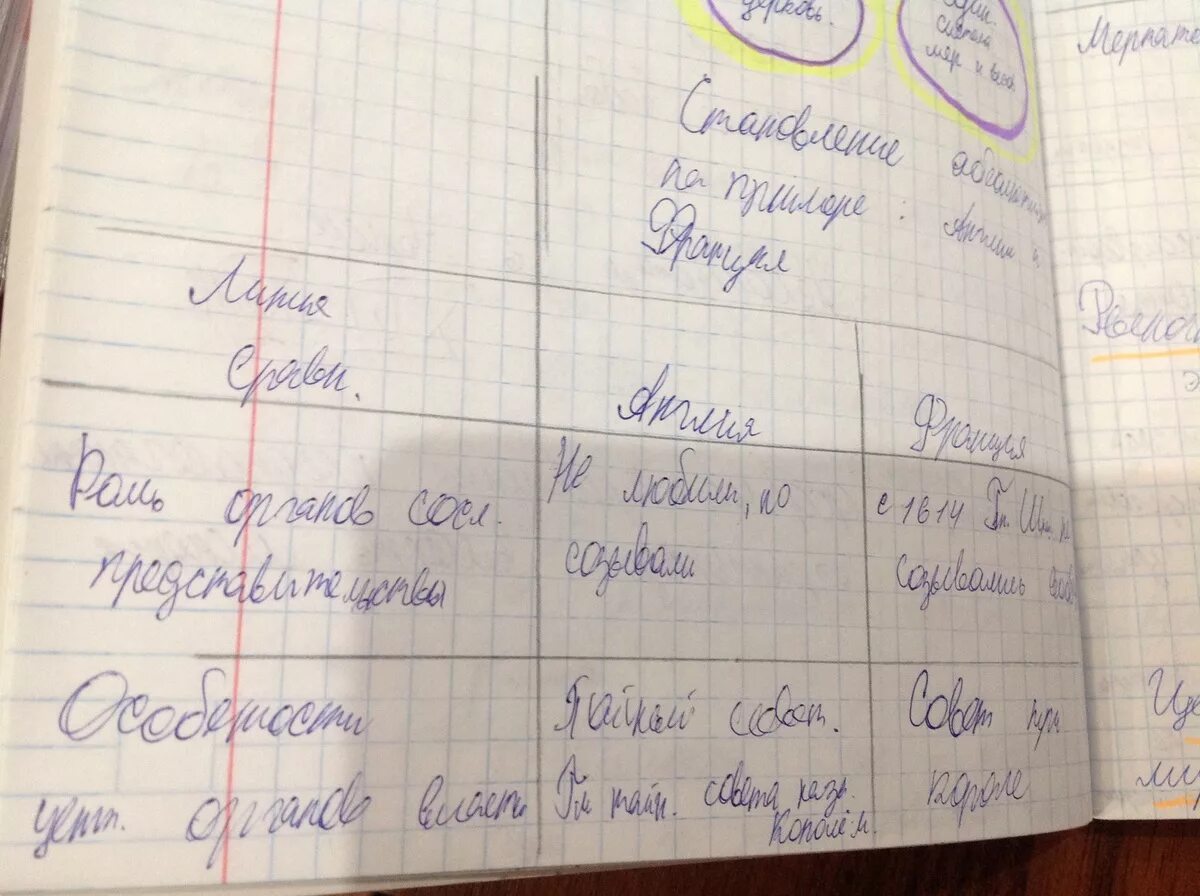 церковь.
един.
система
мер и весов
Становление абсолютизма
на примере: Англии и
Франция
Линия
сравн.
Англия
Франция
Роль органов сосл.
представительствы
Не любили, но
созывали
с 1614 Ген. Шт. не
созывались
Особености
центр. органов власти
Тайный совет.
Гл. тайн. совета назн.
Королём.
Совет при
короле